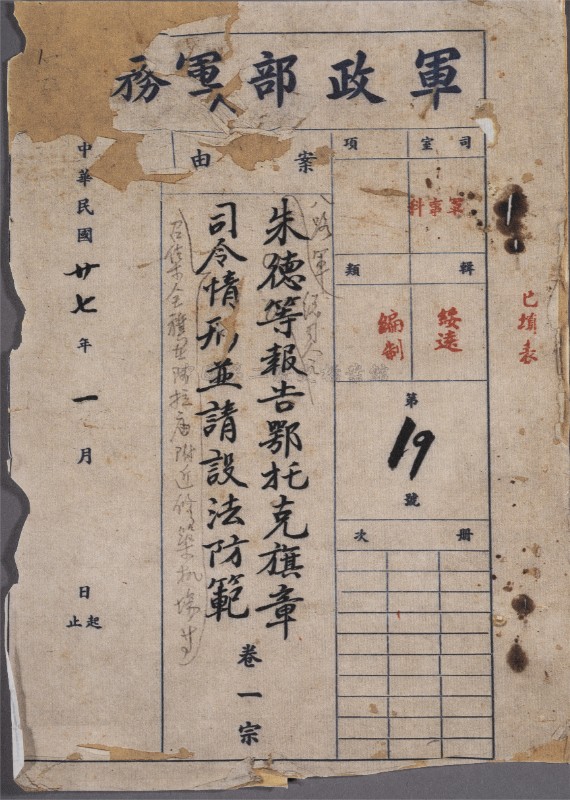 軍政部軍務
司室
軍事科
輯
綏遠
項
類
編制
第
19
號
冊次
案由
朱德等報告鄂托克旗章
司令情形並請設法防範
卷一宗
八路軍總司令
附近修築機場等
中華民國廿七年一月 日 起止
已填表